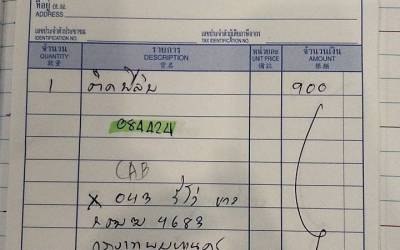 ที่อยู่
ADDRESS
เลขประจำตัวประชาชน เลขประจำตัวผู้เสียภาษีอากร
IDENTIFICATION NO. TAX IDENTIFICATION NO.
จำนวน รายการ หน่วยละ จำนวนเงิน
QUANTITY DESCRIPTION UNIT PRICE AMOUNT
數量 貨名 備註 單銀
1 ติดฟิล์ม 900
084424
CAB
x 043
4683
กรุงเทพมหานคร